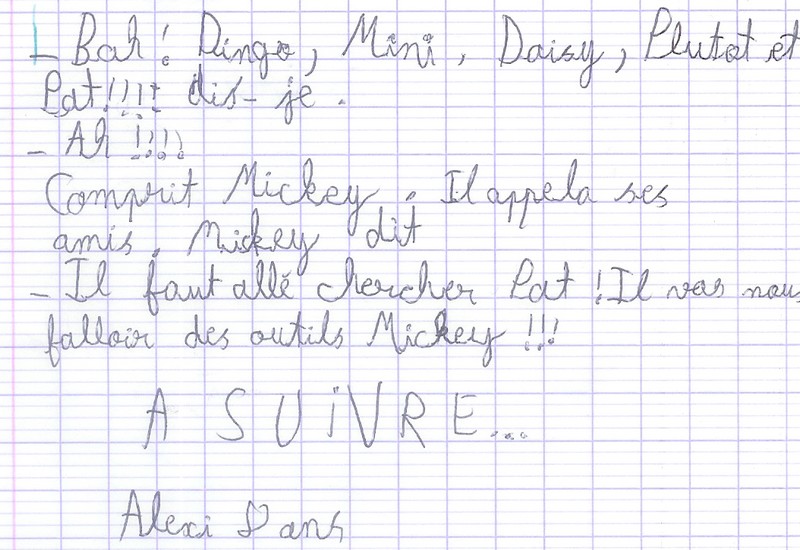 - Bah ! Dingo, Mini, Daisy, Plutot et
Pat!!!! dis-je.
- Ah !!!!
Comprit Mickey. Il appela ses
amis. Mickey dit
- Il faut allé chercher Pat ! Il vas nous
falloir des outils Mickey !!!
A SUiVRE...
Alexi 8 ans